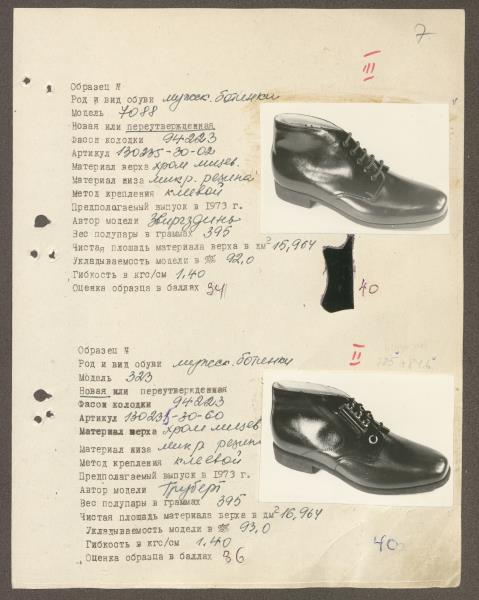 7
III
Образец №
Род и вид обуви мужск. ботинки
Модель 7088
Новая или переутвержденная
Фасон колодки 94223
Артикул 130235-30-02
Материал верха хром лицев.
Материал низа микр. резина
Метод крепления клеевой
Предполагаемый выпуск в 1973 г.
Автор модели Звиргздинь
Вес полупары в граммах 395
Чистая площадь материала верха в дм² 15,964
Укладываемость модели в % 92,0
Гибкость в кгс/см 1,40
Оценка образца в баллах 34
40
II
Образец №
Род и вид обуви мужск. ботинки
Модель 323
Новая или переутвержденная
Фасон колодки 94223
Артикул 130235-30-60
Материал верха хром лицев
Материал низа микр резина
Метод крепления клеевой
Предполагаемый выпуск в 1973 г.
Автор модели Груберт
Вес полупары в граммах 395
Чистая площадь материала верха в дм² 16,964
Укладываемость модели в % 93,0
Гибкость в кгс/см 1,40
Оценка образца в баллах 36
40